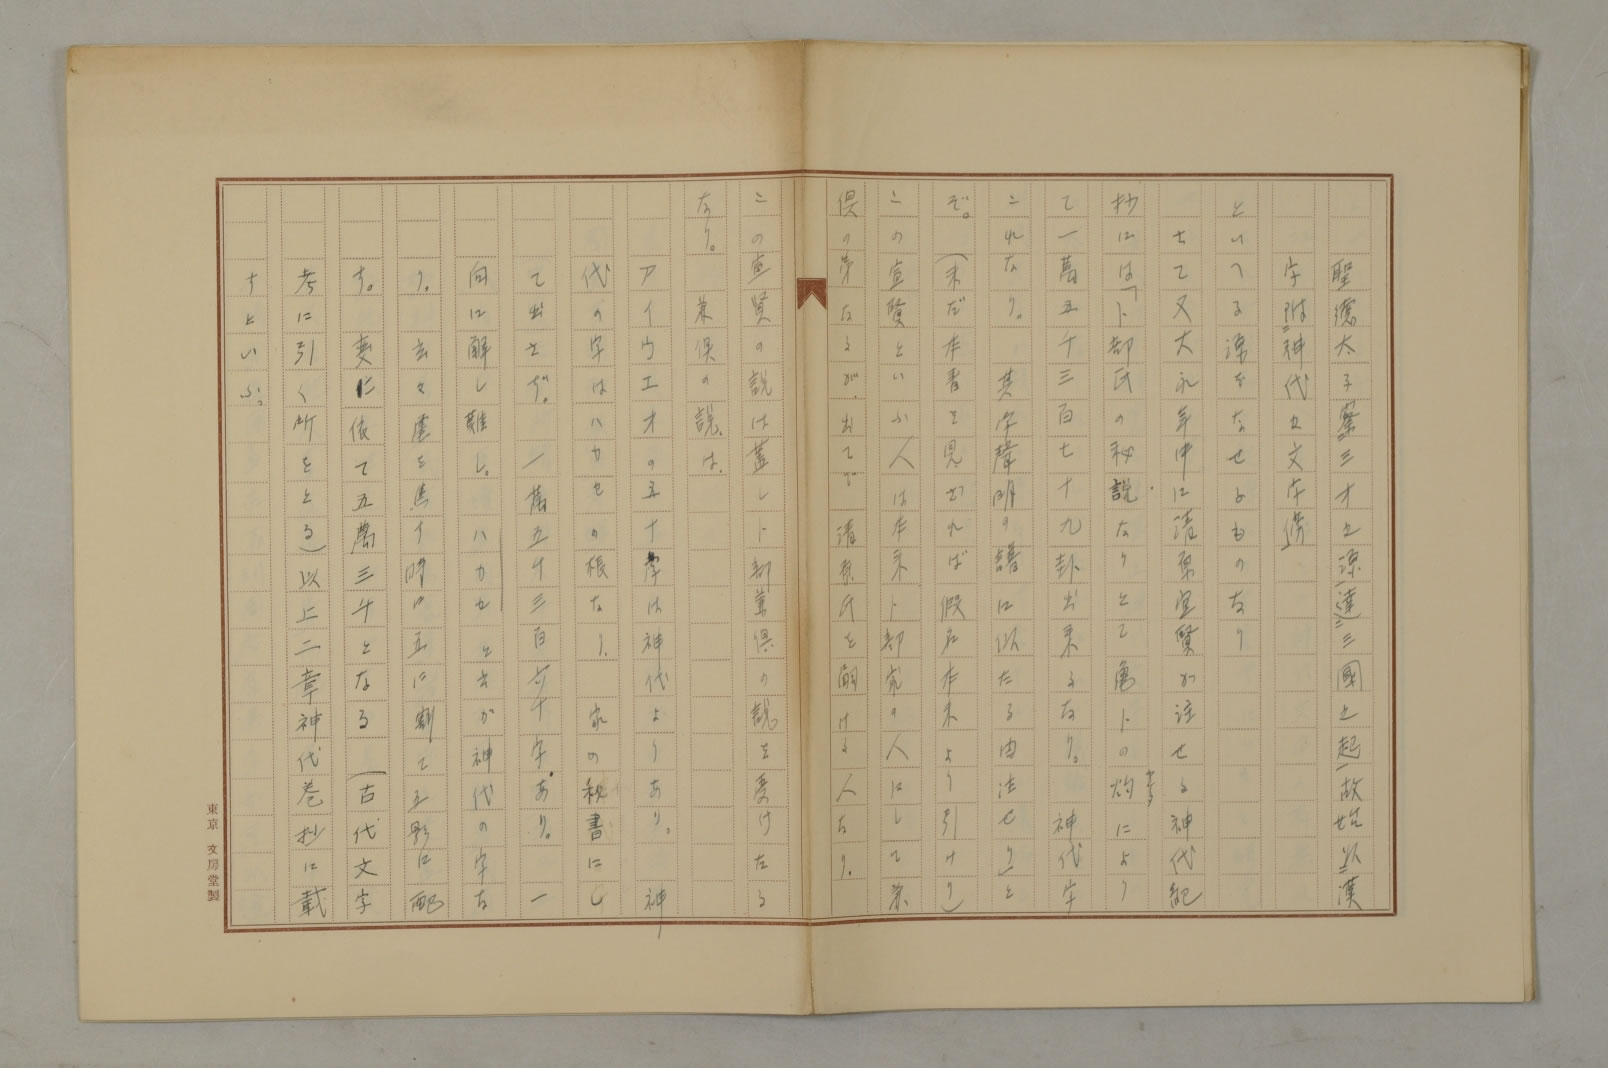 聖徳太子察三才之源(達)三國之起(故始以漢
字附神代之文字傍」
といへる源をなせるものなり
さて又大永年中に清原宣賢が注せる神代紀
抄には「卜部氏の秘説なりとて亀卜の灼により
て一萬五千三百七十九卦出来るなり。神代字
これなり。其字聲明の譜に似たる由注せり」と
ぞ。(未だ本書を見ざれば假名本末より引けり)
この宣賢といふ人は本来卜部家の人にして兼
倶の弟なるが、出てで清原氏を嗣ける人なり。
この宣賢の説は蓋し卜部兼倶の説を受けたる
なり。兼倶の説は、
アイウエオの五十字は神代よりあり。神
代の字はハカセの根なり、家の秘書にし
て出さず。一萬五千三百六十字あり。一
向に解し難し。ハカセと云が神代の字な
り。云々 を 時は五に割て五 に配
す。 に依て五萬三千となる(古代文字
考に引く所をとる)以上二章神代巻抄に載
すといふ。
東京 文房堂製